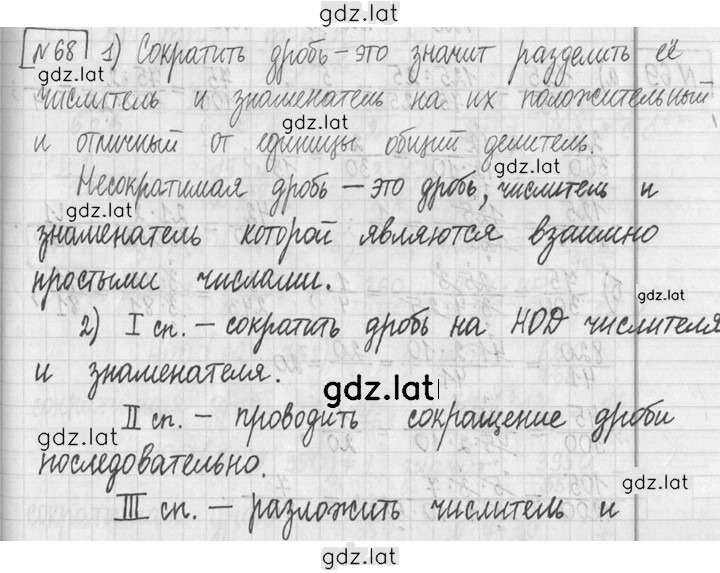 gdz.lat
№68 1) Сократить дробь – это значит разделить её
gdz.lat
числитель и знаменатель на их положительный,
gdz.lat
и отличный от единицы общий делитель.
gdz.lat
Несократимая дробь – это дробь, числитель и
gdz.lat
знаменатель которой являются взаимно
простыми числами.
gdz.lat
2) I сп. – сократить дробь на НОД числителя
и знаменателя.
gdz.lat
II сп. – проводить сокращение дроби
gdz.lat
последовательно.
gdz.lat
III сп. – разложить числитель и
gdz.lat